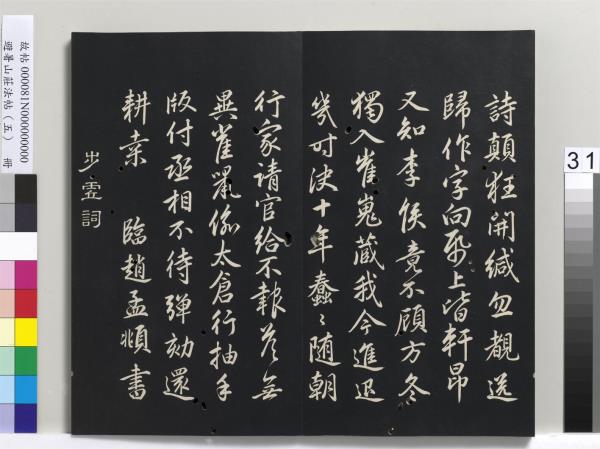 詩顛狂開緘忽覩送
歸作字向紙上皆軒昂
又知李侯竟不顧方冬
獨入崔嵬藏我今進退
幾时决十年蠢〻随朝
行家請官給不報荅無
異雀鼠偷太倉行抽手
版付丞相不待彈劾還
耕桒 臨趙孟頫書
步虛詞
故帖 000081N000000000
避暑山莊法帖(五) 冊
31